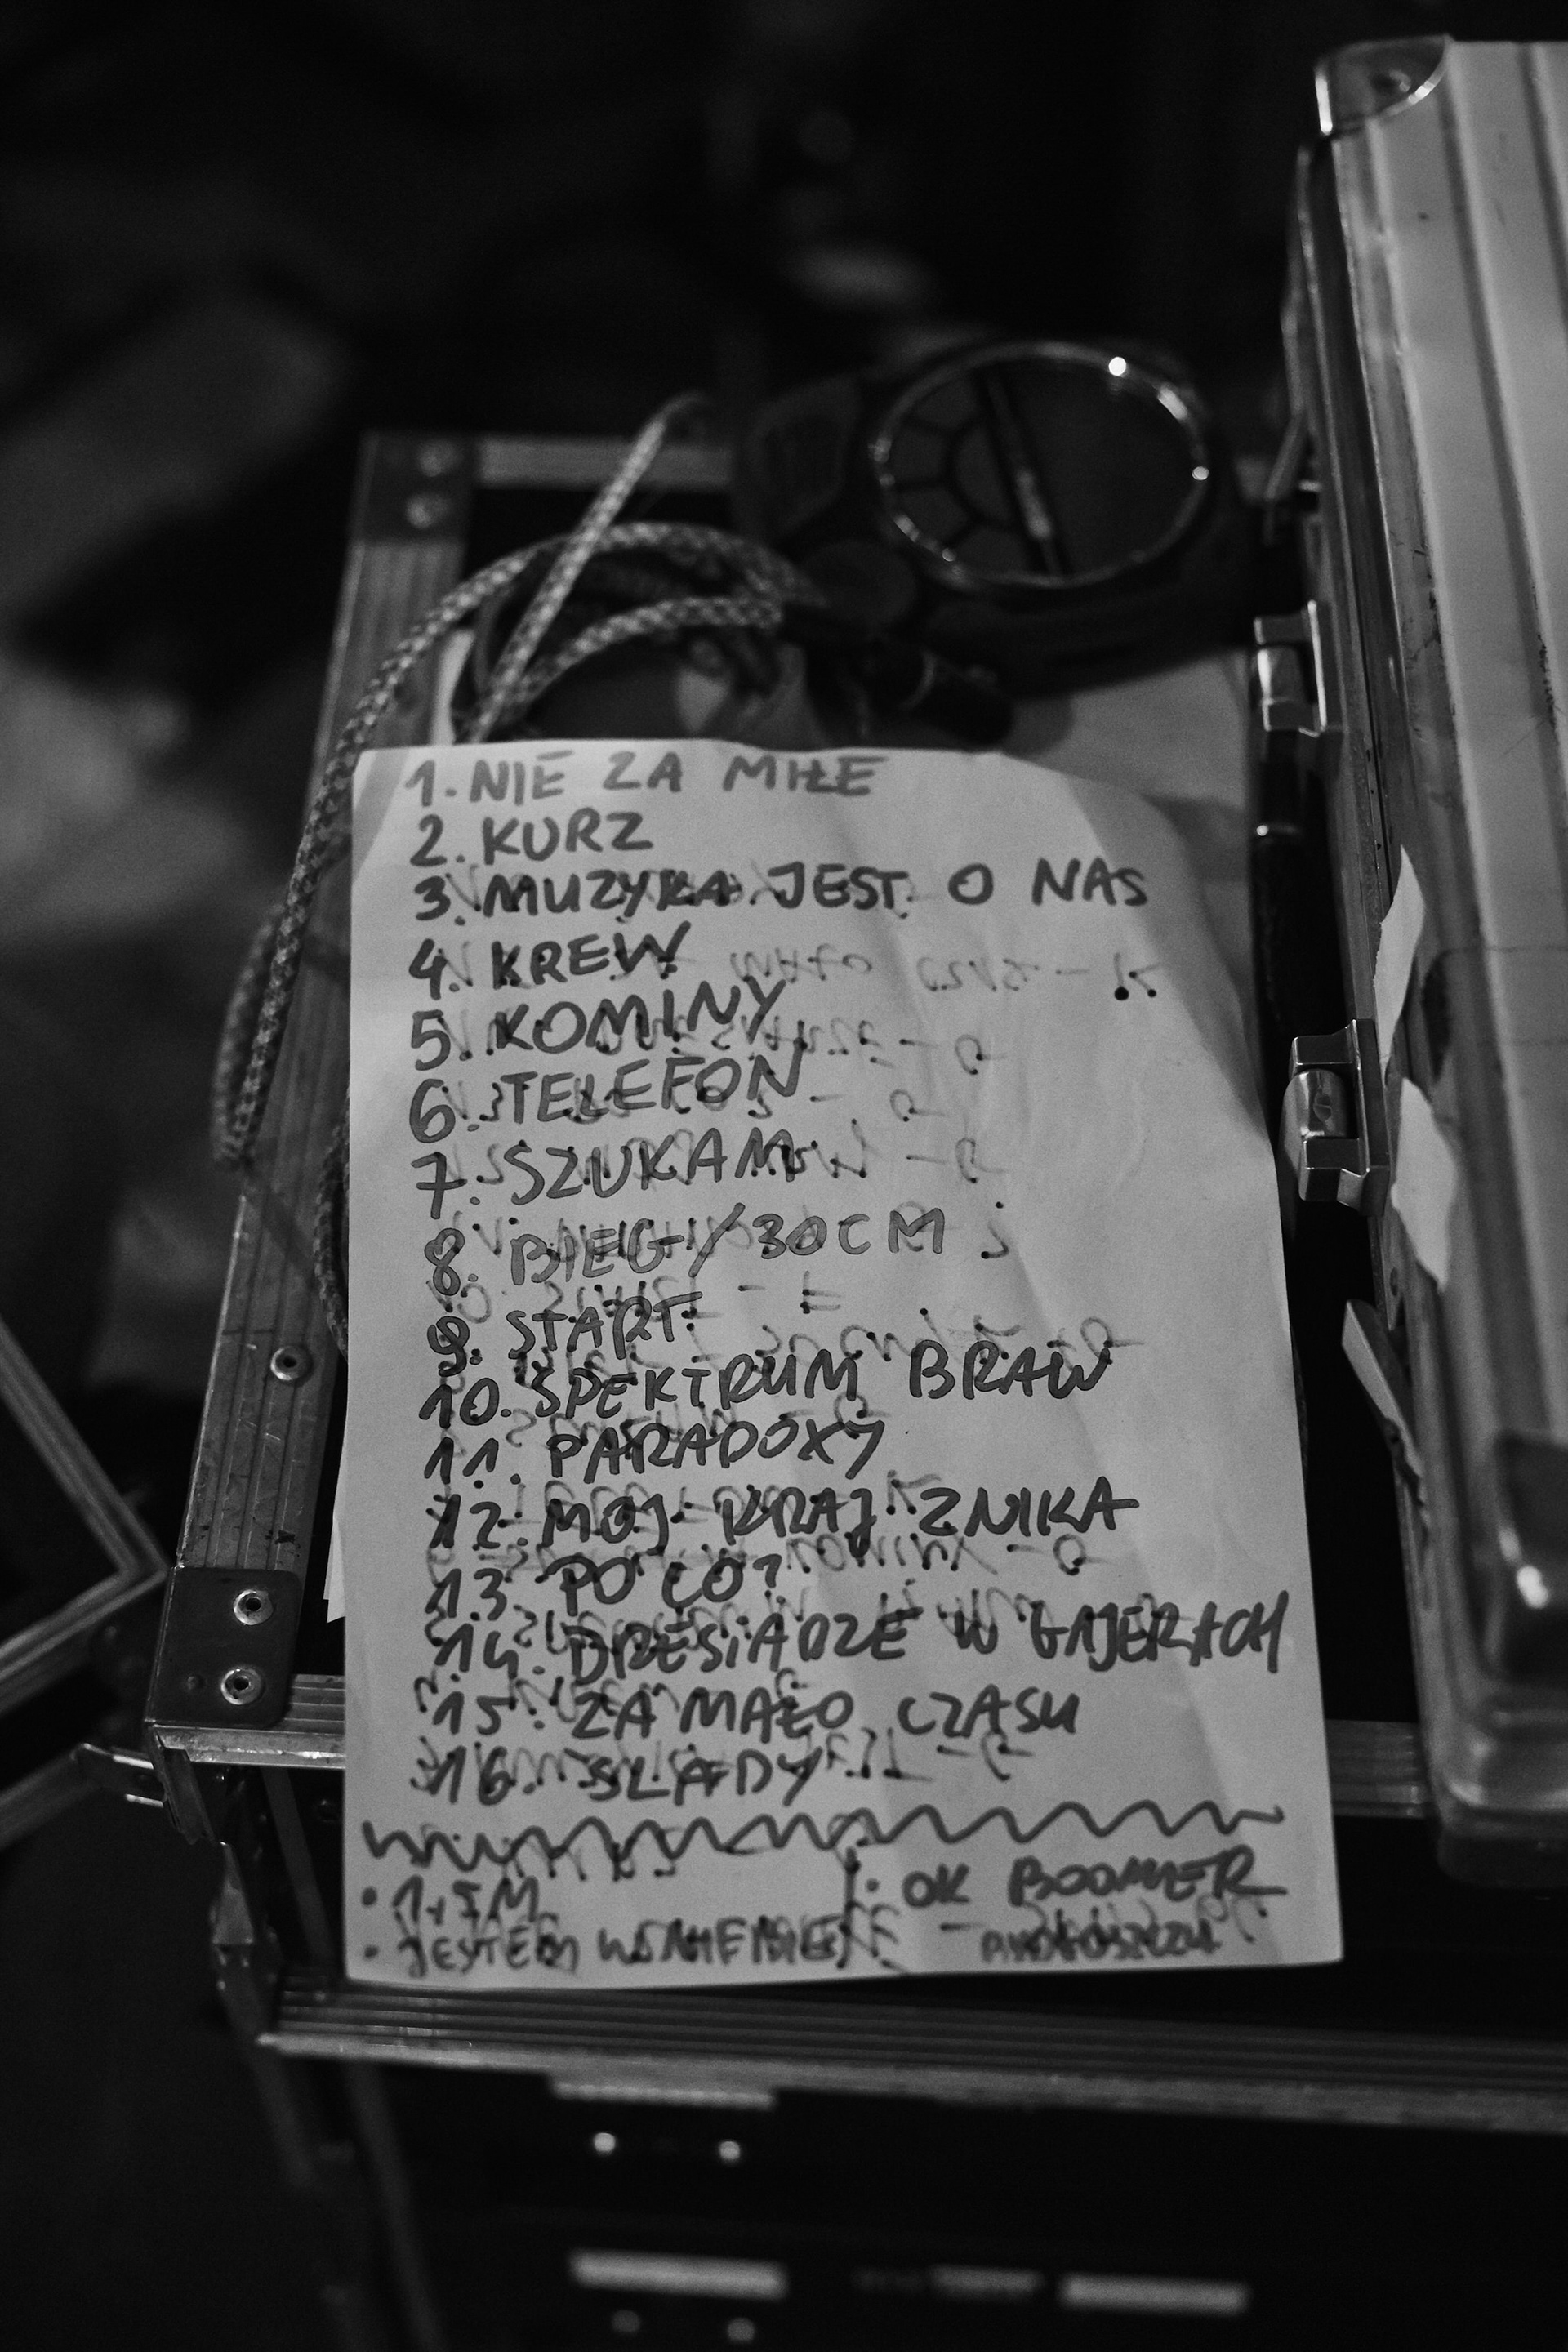 1. NIE ZA MIŁE
2. KURZ
3. MUZYKA JEST O NAS
4. KREW
5. KOMINY
6. TELEFON
7. SZUKAM
8. BIEG / 30CM
9. START
10. SPEKTRUM BRAW
11. PARADOXY
12. MÓJ KRAJ ZNIKA
13. PO CO?
14. DRESIARZE W GAJERACH
15. ZA MAŁO CZASU
16. ŚLADY
• OK BOOMER
• JESTEM W